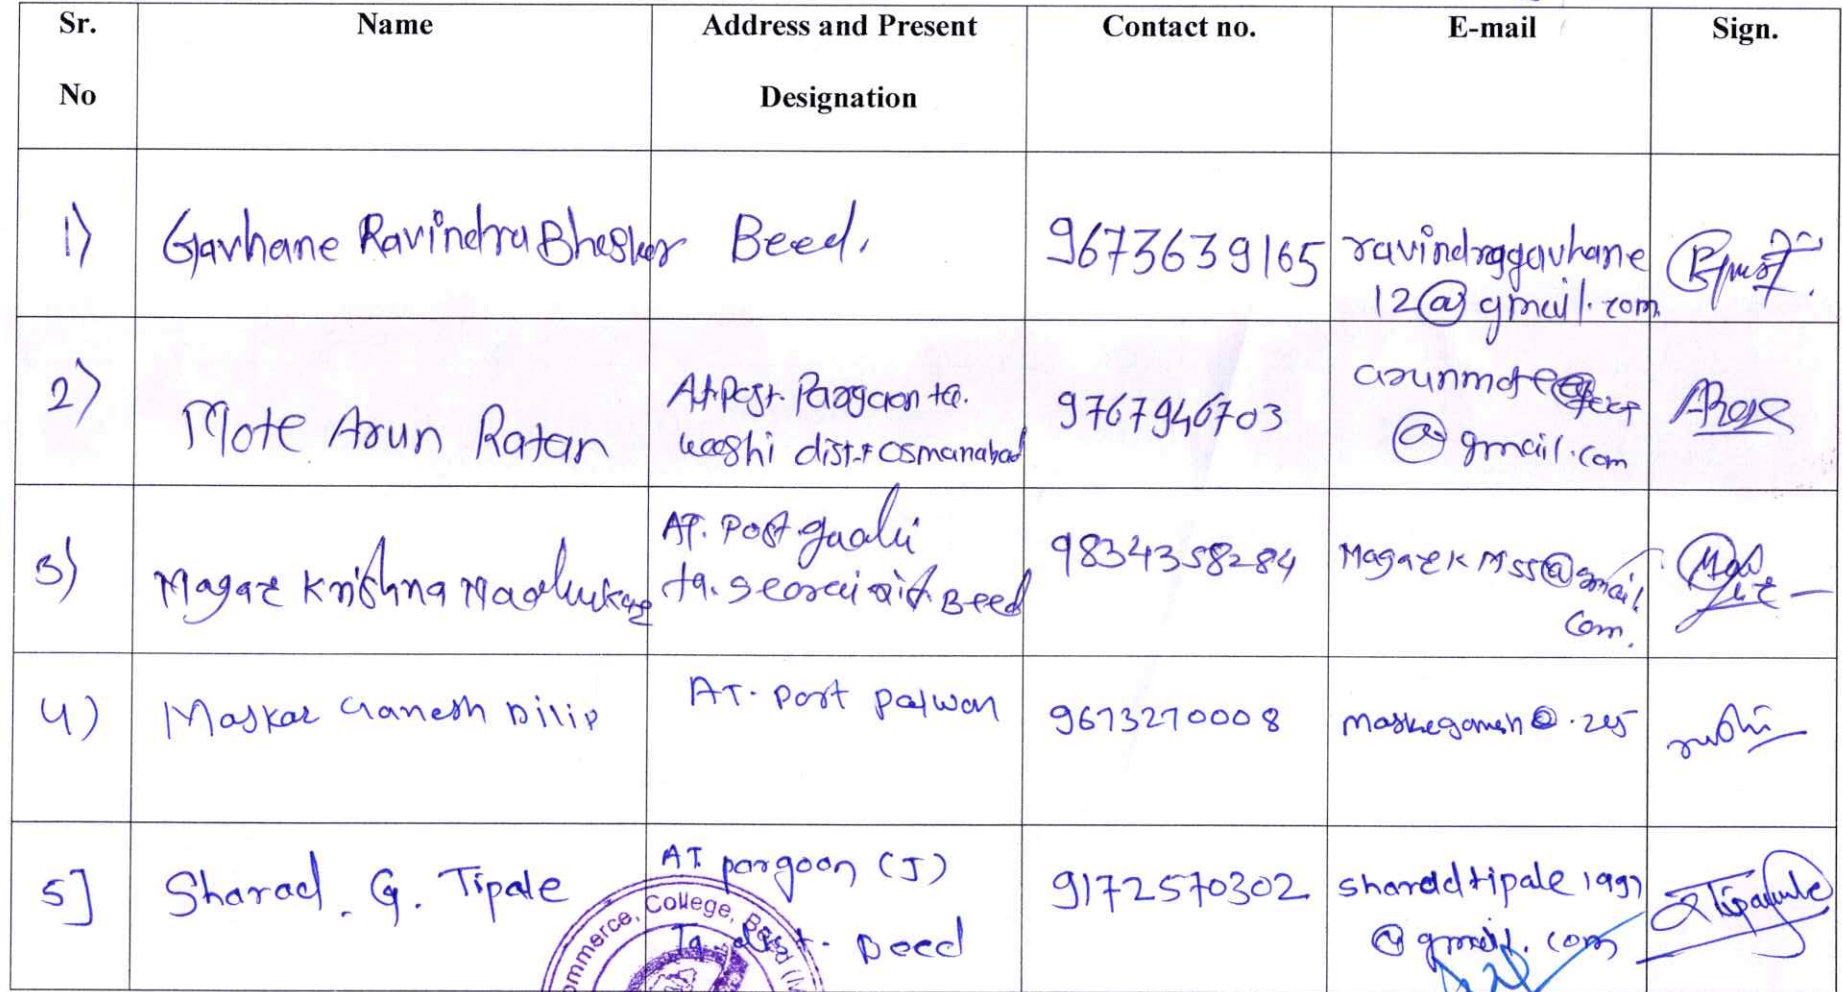 Sr. No | Name | Address and Present Designation | Contact no. | E-mail | Sign.
1) | Gavhane Ravindra Bhaskar | Beed. | 9673639165 | ravindragavhane
12@gmail.com
2) | Mote Arun Ratan | At.post. Pargaon ta.
washi dist. Osmanabad | 9767946703 | arunmote
@gmail.com
3) | Magar Krishna Madhukar | AT. Post
ta. georai dist Beed | 9834358284 | MagarKMss@gmail.
com.
4) | Maskar Ganesh Dilip | AT. post palwan | 9673270008
5] | Sharad. G. Tipale | AT. pargoon (J)
Ta. dist. Beed | 9172570302 | sharadtipale1997
@gmail.com
ommerce, College, Beed (M